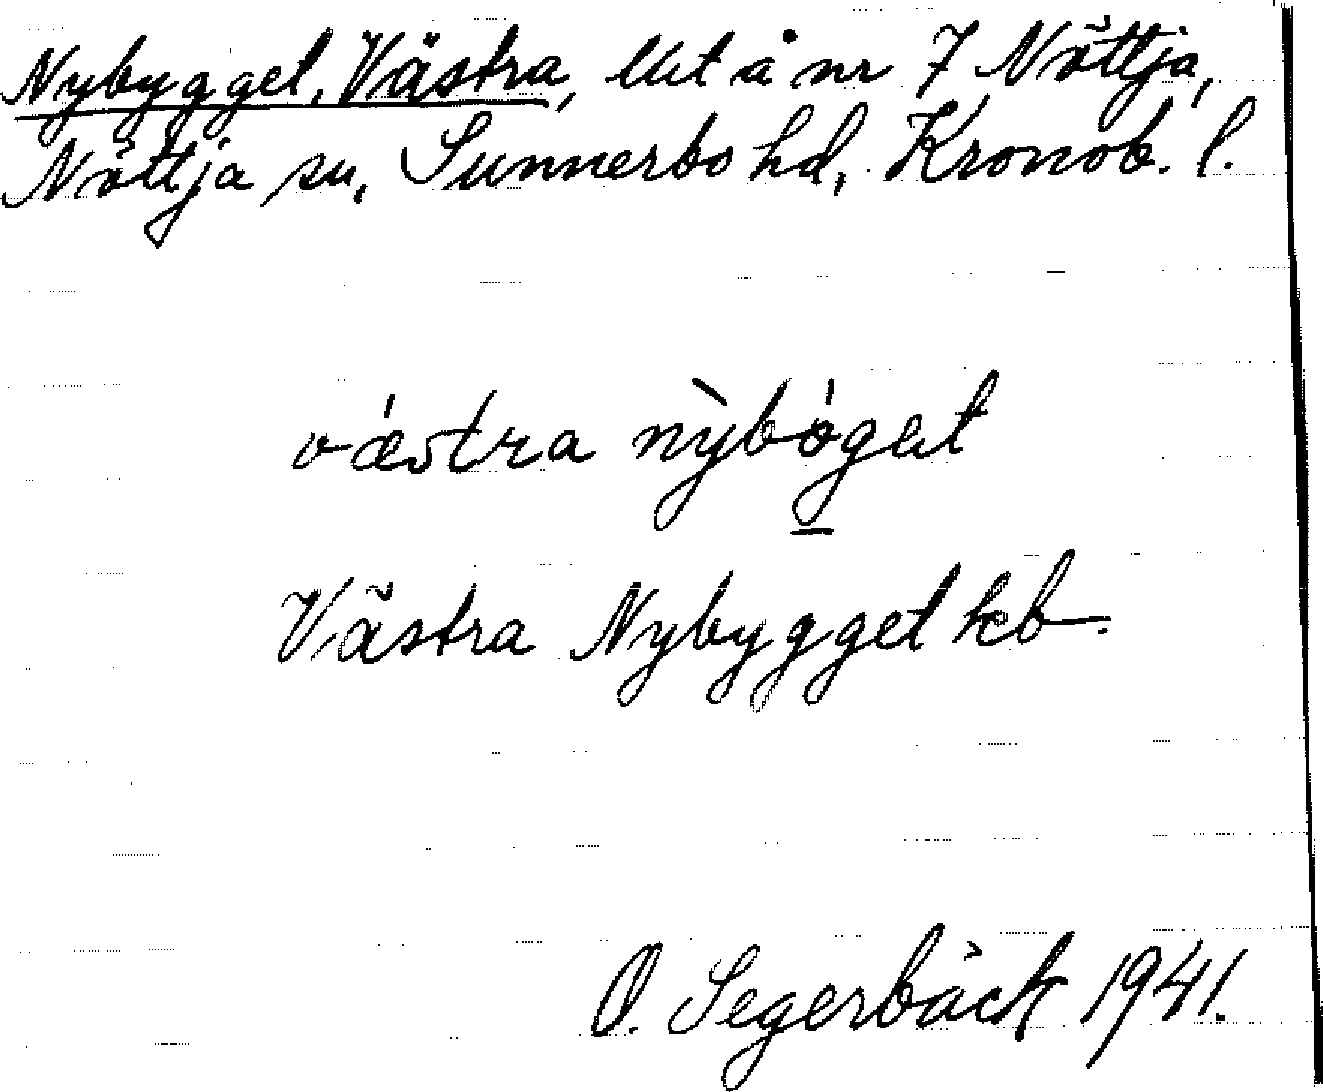 Nybygget, Västra, lkt å nr 7 Nöttja,
Nöttja sn, Sunnerbo hd, Kronob. l.
vǽstra nỳbǿget
Västra Nybygget kb.
O. Segerbäck 1941.